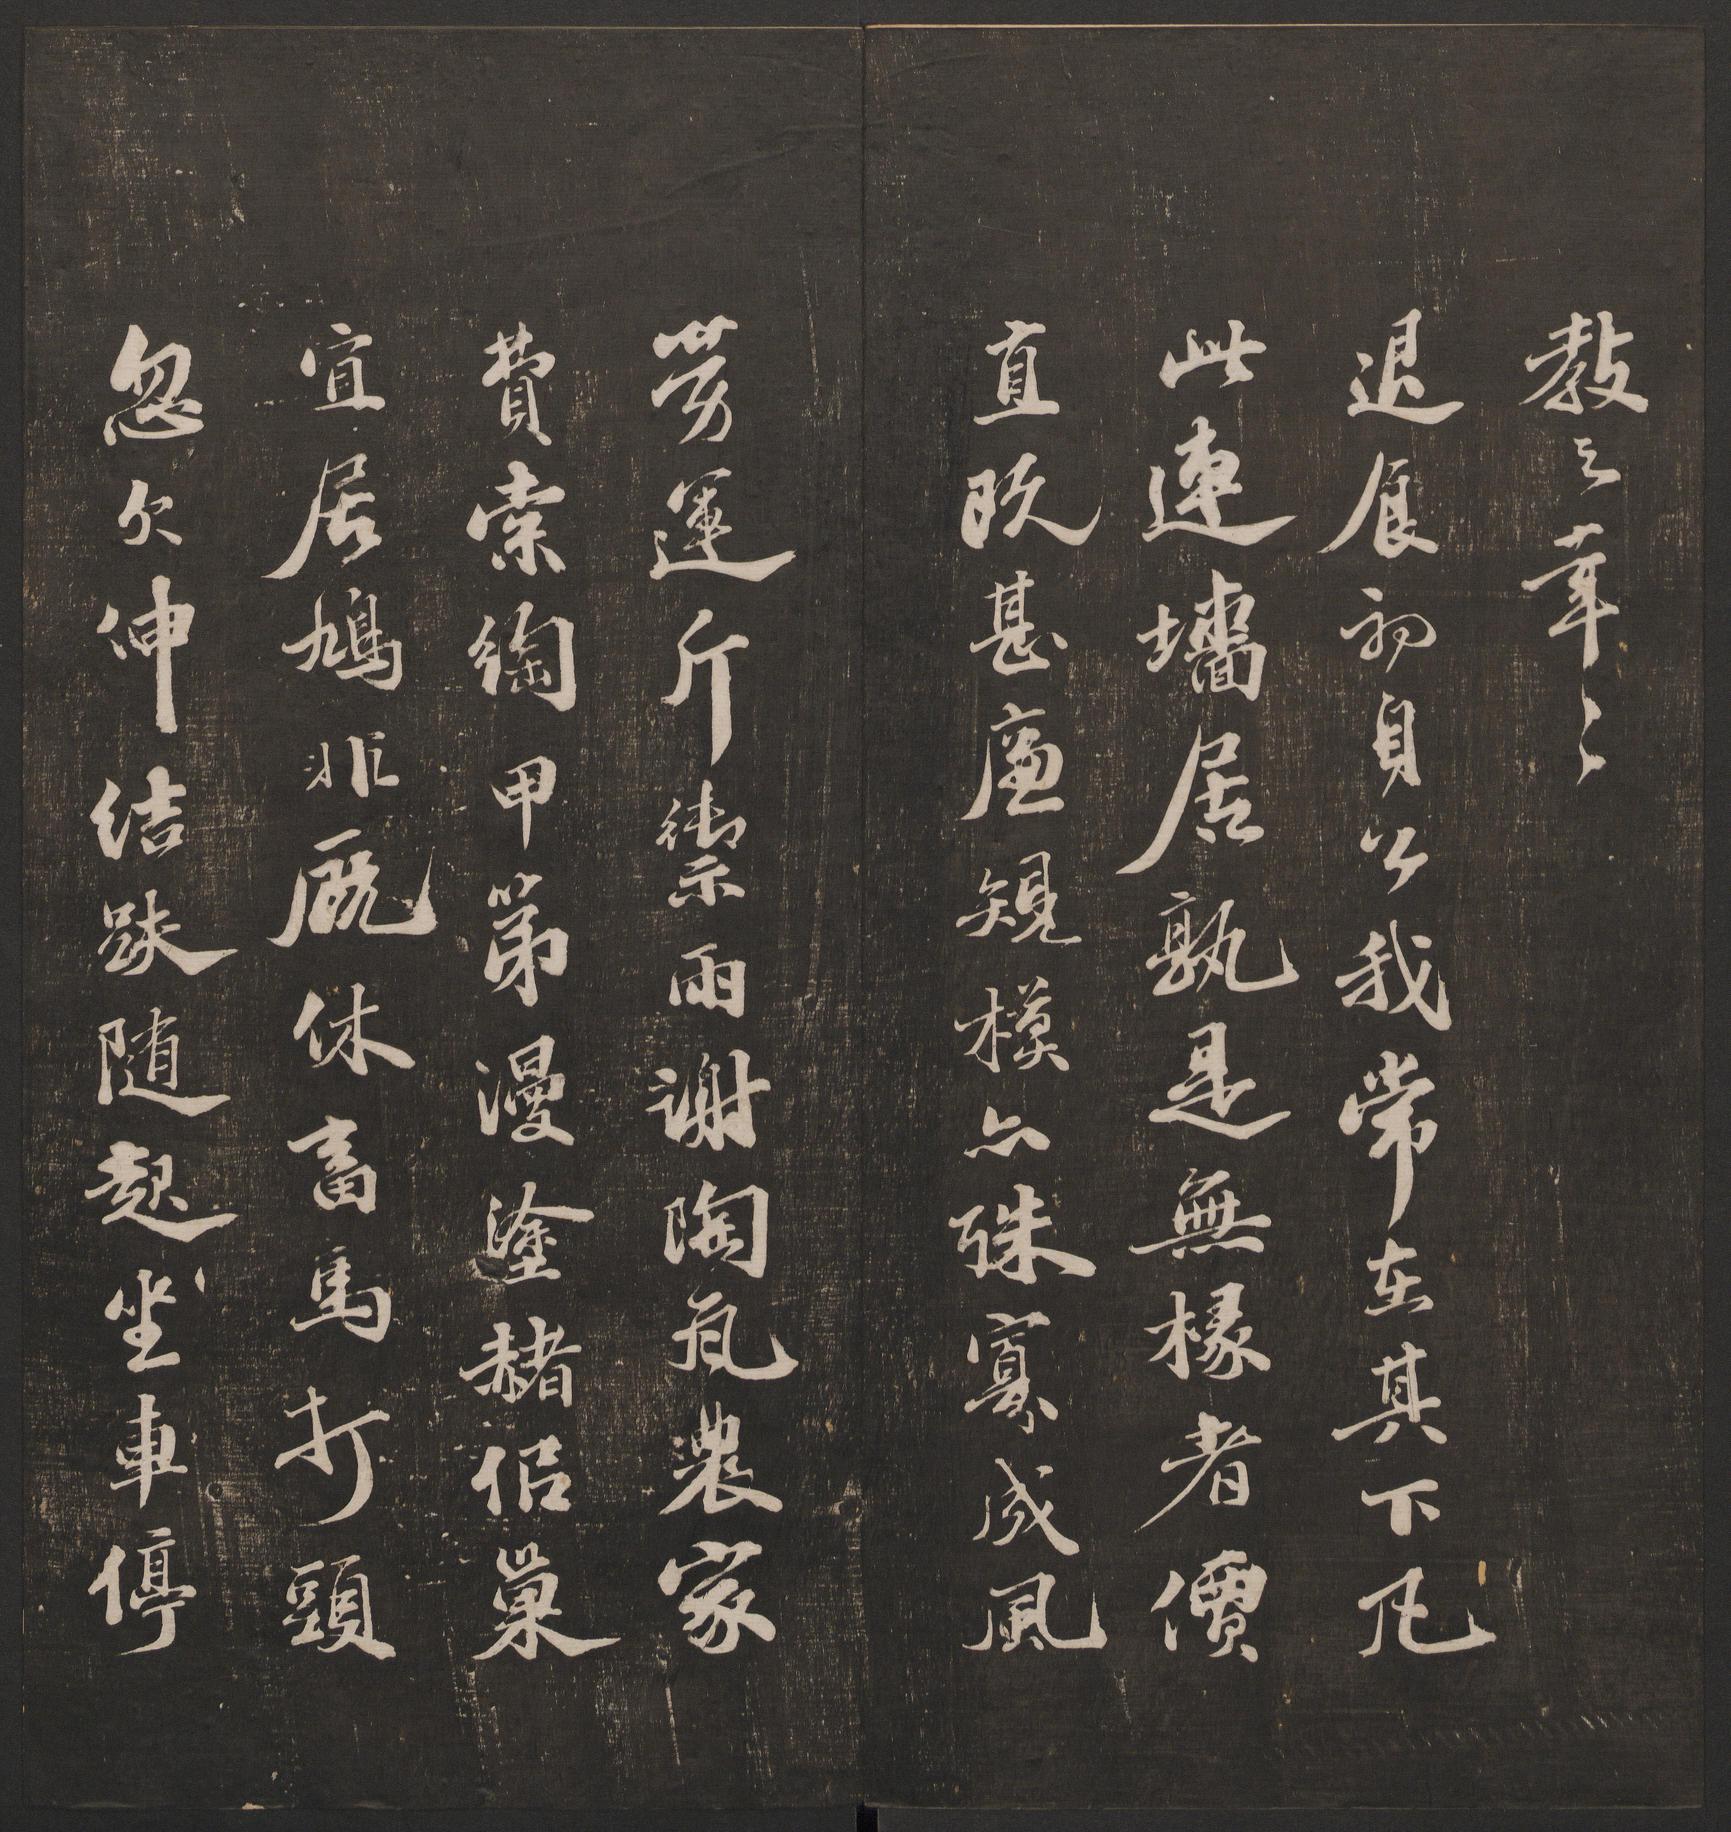 教之幸〻
退食初自公我常在其下凡
此連墻居孰是無椽者價
直既甚廉規模亦殊寡成風
勞運斤禦雨謝陶瓦農家
費索綯甲第漫塗赭侶巢
宜居鳩非廐休畜馬打頭
忽欠伸結趺隨起坐車停